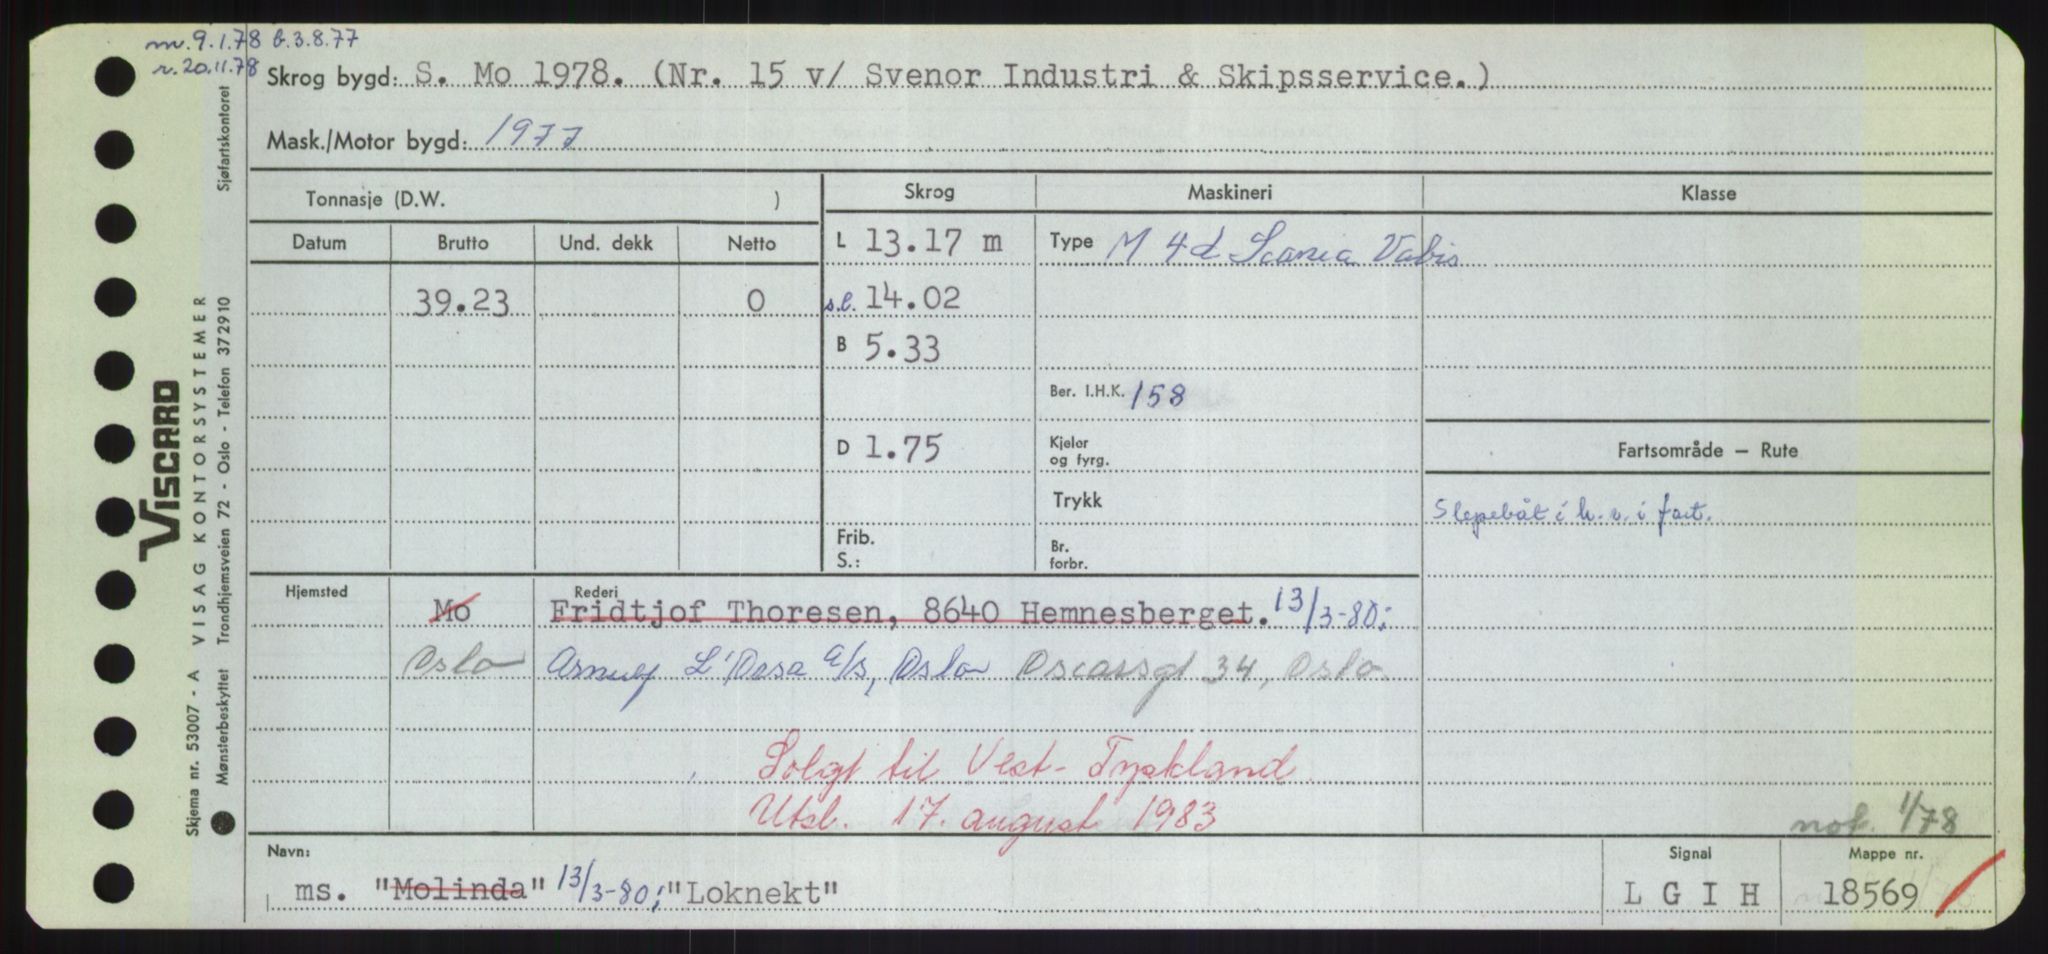 m. 9.1.78 b.3.8.77
r. 20.11.78
Skrog bygd: S. Mo 1978. (Nr. 15 v/ Svenor Industri & Skipsservice.)
Mask./Motor bygd: 1977
Tonnasje (D.W. ) Skrog Maskineri Klasse
Datum Brutto Und. dekk Netto L 13.17 m Type M 4d Scania Vabis
39.23 0 s.l. 14.02
B 5.33
Ber. I.H.K. 158
D 1.75 Kjeler og fyrg. Fartsområde — Rute
Trykk Slepebåt i k.v. i fart.
Frib. S.: Br. forbr.
Hjemsted Rederi
Mo Fridtjof Thoresen, 8640 Hemnesberget. 13/3-80;
Oslo Arnulf L'Orsa a/s, Oslo Oscarsgt 34, Oslo
Solgt til Vest-Tyskland
Utsl. 17. august 1983
not. 1/78
Navn: Signal Mappe nr.
ms. "Molinda" 13/3-80; "Loknekt" L G I H 18569
VISCARD
Skjema nr. 53007 - A VISAG KONTORSYSTEMER
Mønsterbeskyttet Trondhjemsveien 72 - Oslo - Telefon 372910 Sjøfartskontoret